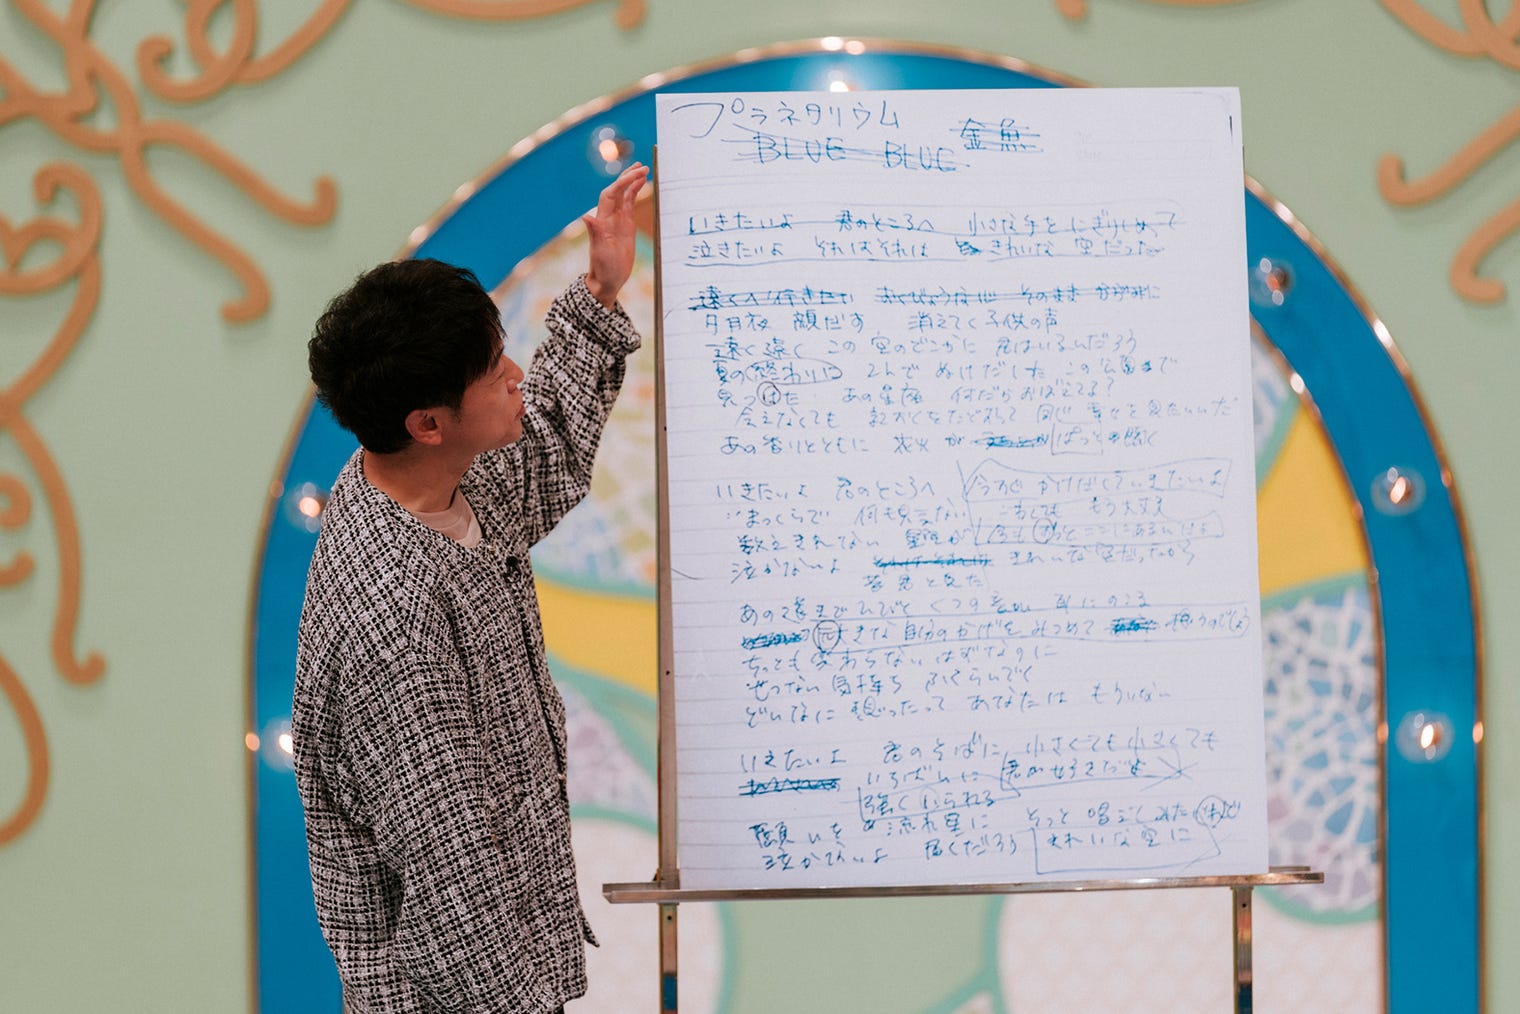 プラネタリウム
BLUE BLUE 金魚
いきたいよ 君のところへ 小さな手をにぎりしめて
泣きたいよ それはそれは きれいな空だった
遠くへ行きたい そのまま
夕月夜 顔だす 消えてく子供の声
遠く遠く この空のどこかに 君はいるんだろう
夏の終わりに 2人でぬけだした この公園で
見つけた あの星座 何だかおぼえてる?
会えなくても 記おくをたどって 同じ幸せを見たいんだ
あの香りとともに 花火がぱっと開く
いきたいよ 君のところへ 今すぐかけだしていきたいよ
まっくらで何も見えない こわくても もう大丈夫
数えきれない 星空が 今もずっとここにあるんだよ
泣かないよ きれいな空だったから
昔 君と見た
あの道までひびく くつの音が 耳にのこる
大きな自分のかげをみつめて 想うのでしょう
ちっとも変わらないはずなのに
せつない気持ち ふくらんでく
どんなに想ったって あなたはもういない
いきたいよ 君のそばに 小さくても小さくても
いちばんに 君が好きだよ
強くいられる
願いを 流れ星に そっと唱えてみたけれど
泣かないよ 届くだろう きれいな空に